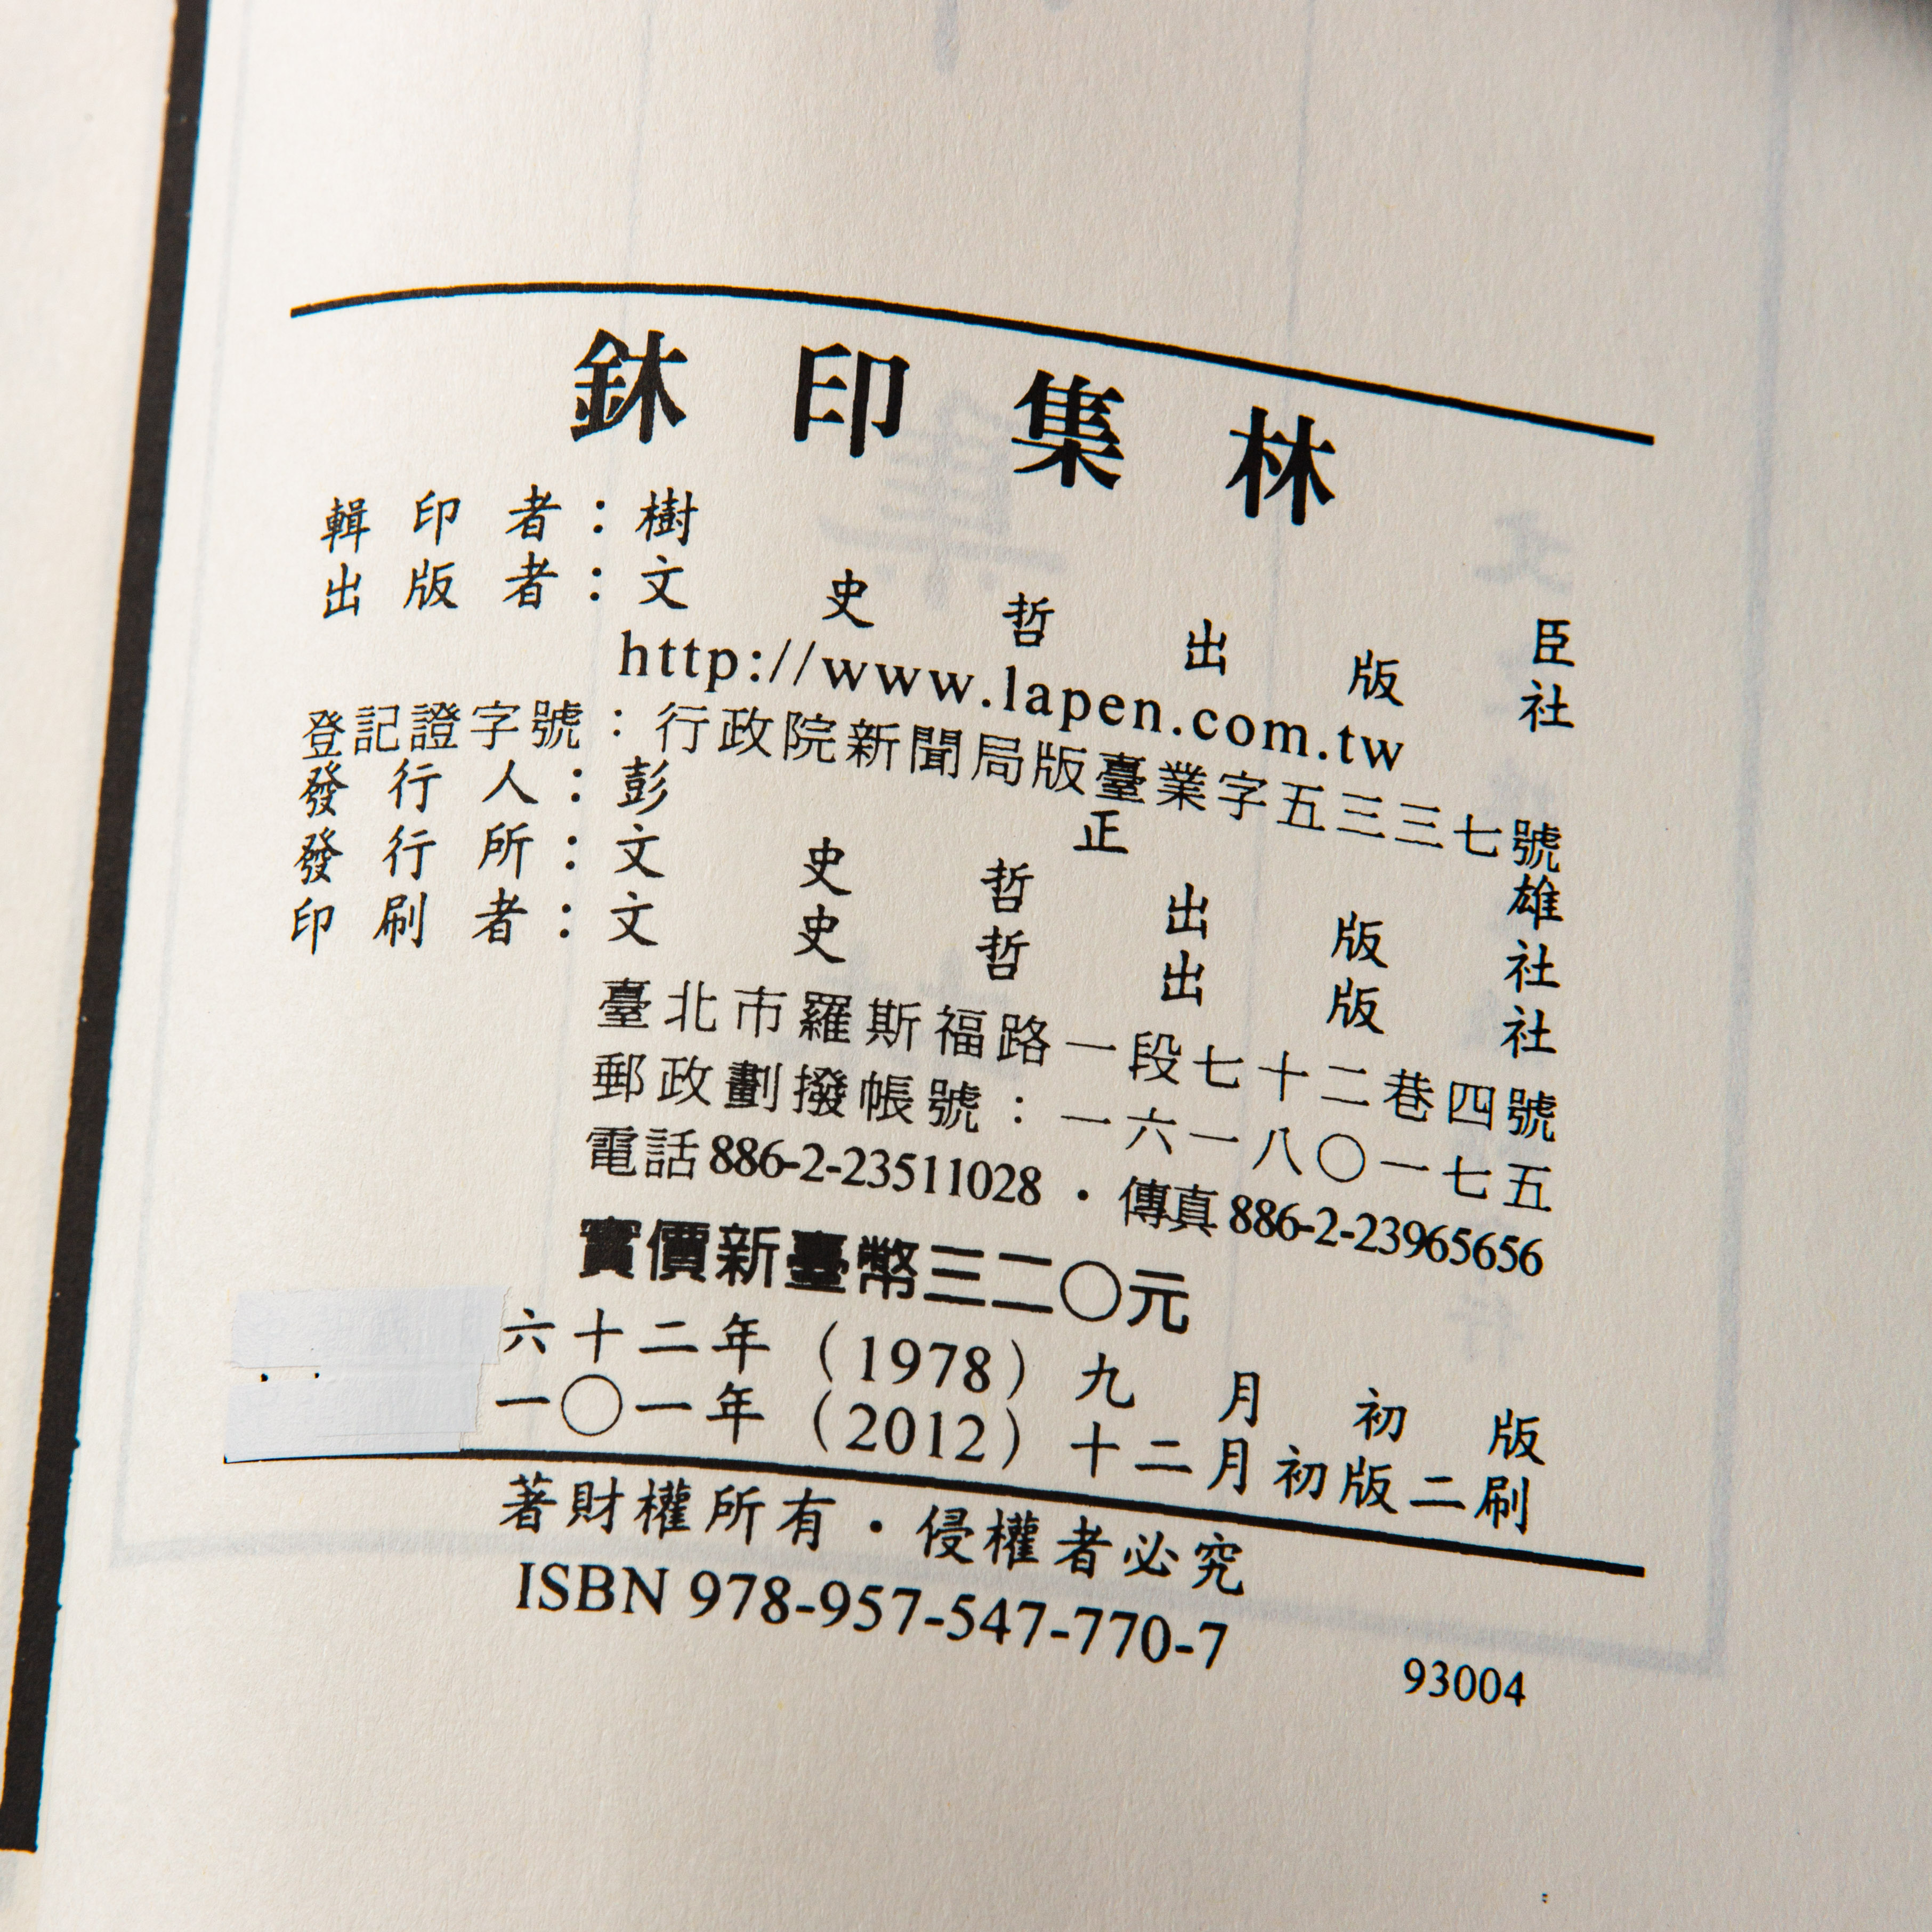 鉥印集林
輯印者：樹臣
出版者：文史哲出版社
http://www.lapen.com.tw
登記證字號：行政院新聞局版臺業字五三三七號
發行人：彭正雄
發行所：文史哲出版社
印刷者：文史哲出版社
臺北市羅斯福路一段七十二巷四號
郵政劃撥帳號：一六一八〇一七五
電話886-2-23511028・傳真886-2-23965656
實價新臺幣三二〇元
六十二年（1978）九月初版
一〇一年（2012）十二月初版二刷
著財權所有・侵權者必究
ISBN 978-957-547-770-7
93004